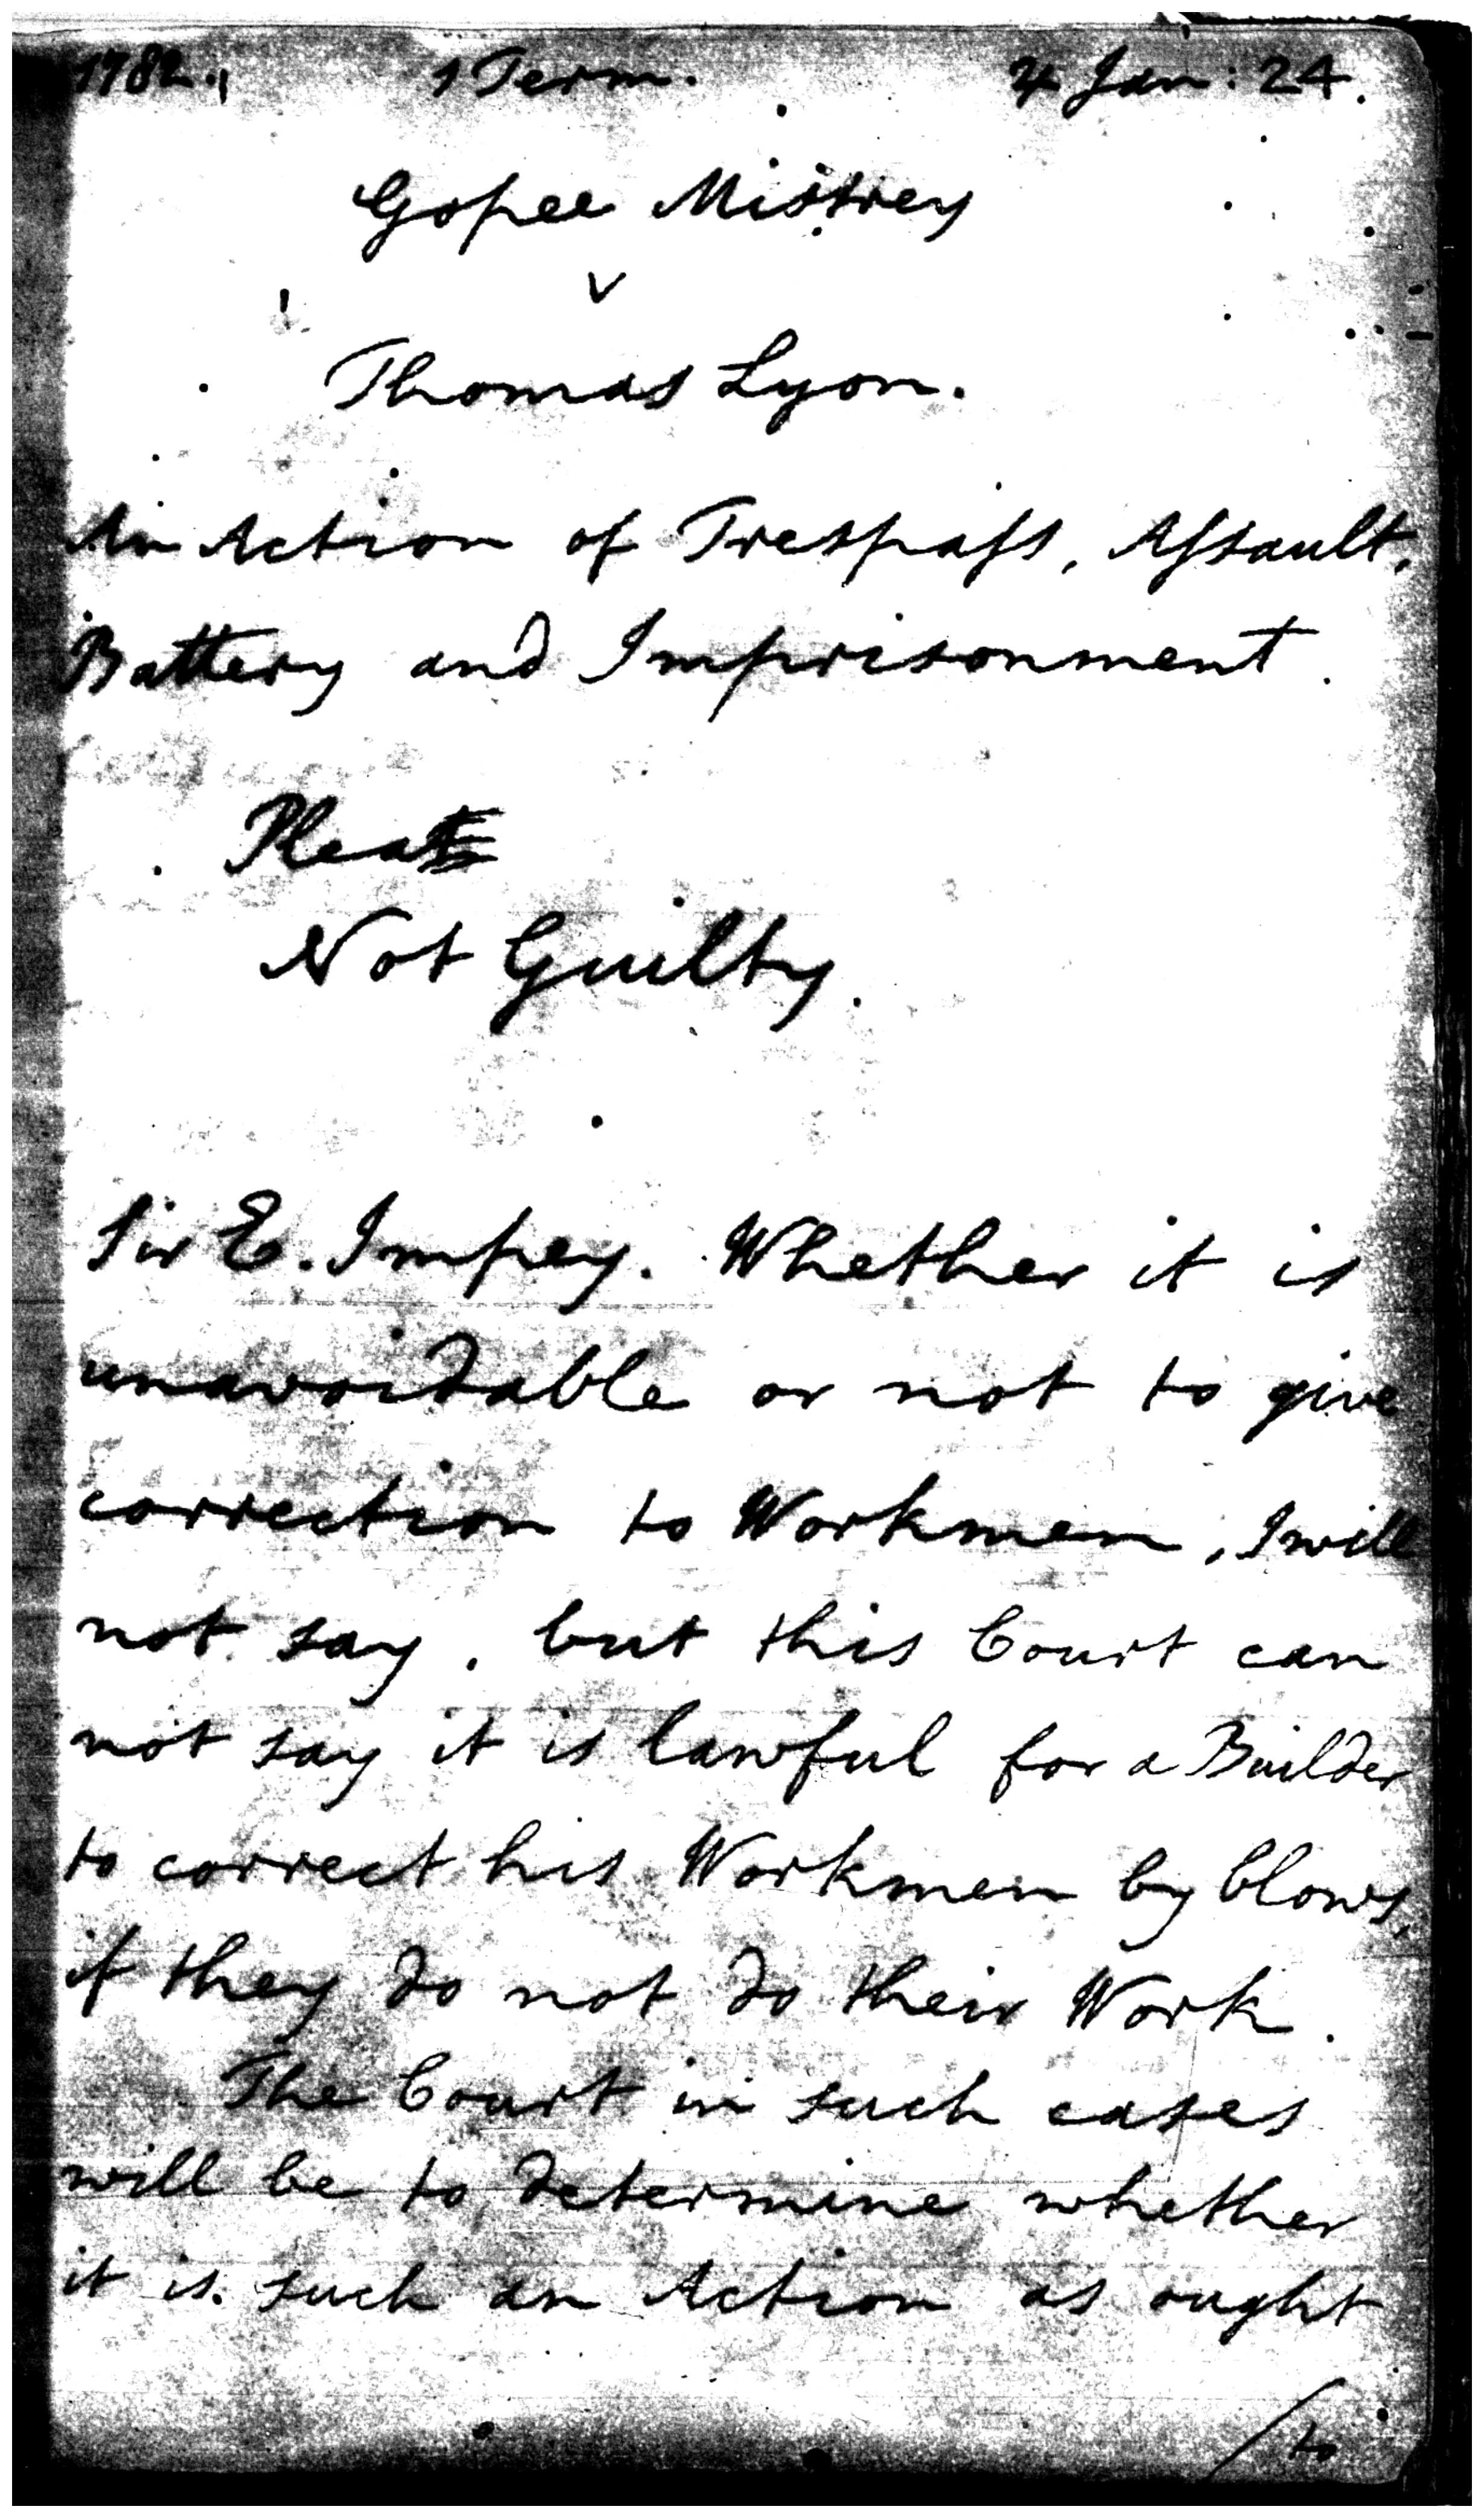 1782. 1 Term. ♃ Jan: 24.
Gopee Mistrey
v
Thomas Lyon.
An Action of Trespass, Assault,
Battery and Imprisonment.
Plea
Not Guilty.
Sir E. Impey. Whether it is
unavoidable or not to give
correction to Workmen, I will
not say, but this Court can
not say it is lawful for a Builder
to correct his Workmen by blows,
if they do not do their Work.
The Court in such cases
will be to determine whether
it is such an Action as ought
/to